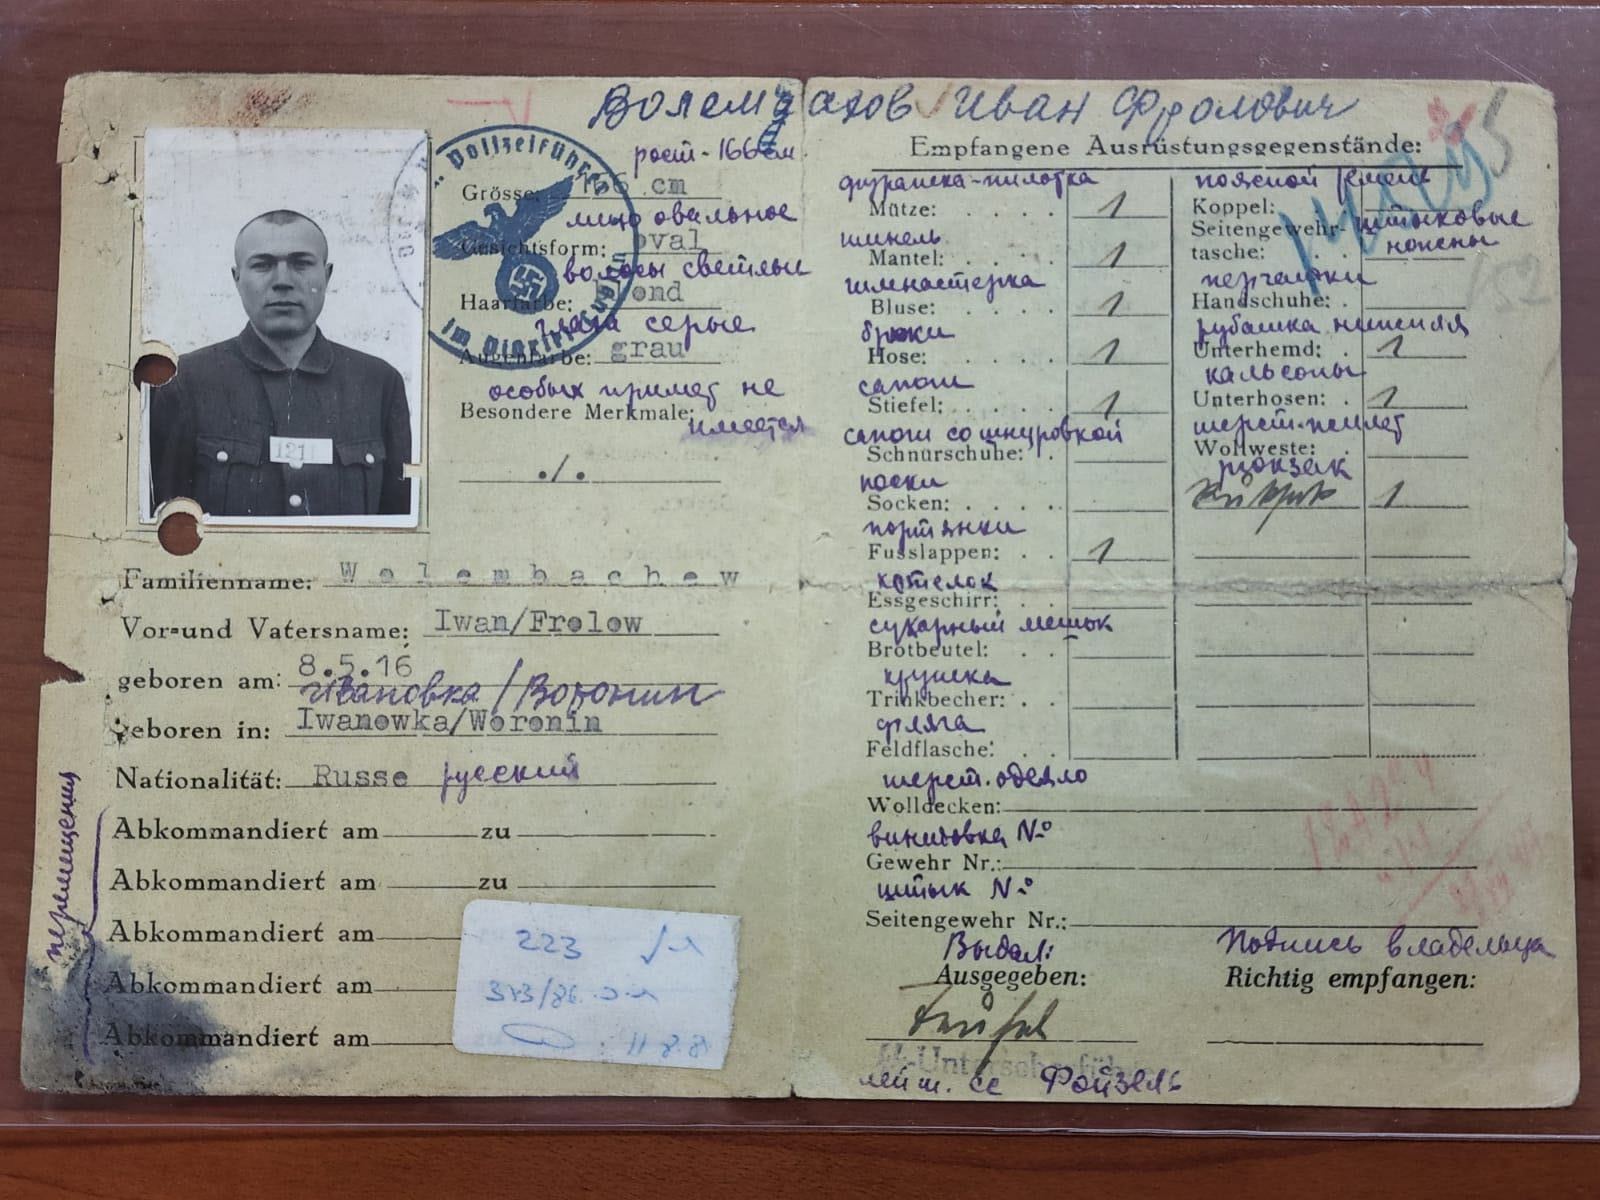 Волембахов Иван Фролович
рост-166см
Polizeiführer
im Distrikt
Grösse: 166 cm
лицо овальное
Gesichtsform: oval
волосы светлые
Haarfarbe: blond
глаза серые
Augenfarbe: grau
особых примет не
Besondere Merkmale:
имеется
./.
121
Familienname: Wolembachew
Vor=und Vatersname: Iwan/Frolow
geboren am: 8.5.16
Ивановка/Воронин
geboren in: Iwanowka/Woronin
Nationalität: Russe русский
перемещения
Abkommandiert am zu
Abkommandiert am zu
Abkommandiert am
Abkommandiert am
Abkommandiert am
223
Empfangene Ausrüstungsgegenstände:
фуражка-пилотка
Mütze: 1
шинель
Mantel: 1
гимнастерка
Bluse: 1
брюки
Hose: 1
сапоги
Stiefel: 1
сапоги со шнуровкой
Schnürschuhe:
носки
Socken:
портянки
Fusslappen: 1
котелок
Essgeschirr:
сухарный мешок
Brotbeutel:
кружка
Trinkbecher:
фляга
Feldflasche:
шерст. одеяло
Wolldecken:
винтовка №
Gewehr Nr.:
штык №
Seitengewehr Nr.:
поясной ремень
Koppel:
Seitengewehr- штыковые
tasche: ножны
перчатки
Handschuhe:
рубашка нижняя
Unterhemd: 1
кальсоны
Unterhosen: 1
шерст. жилет
Wollweste:
рюкзак
1
Выдал:
Ausgegeben:
Подпись владельца
Richtig empfangen:
Unterscharführer
СС Фойзель